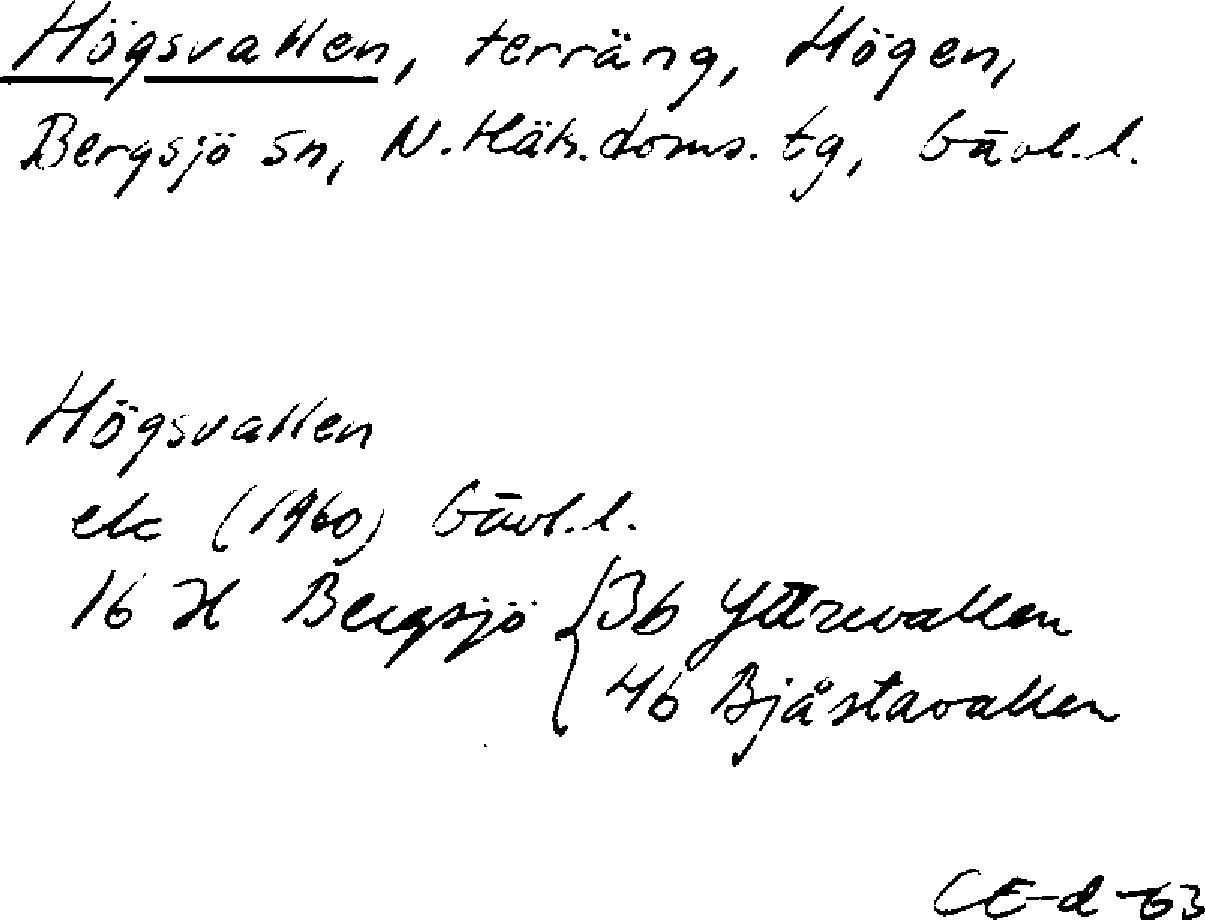 Högsvallen, terräng, Högen,
Bergsjö sn, N. Häls. doms. tg, Gävl. l.
Högsvallen
ek (1960) Gävl. l.
16 H Bergsjö { 3b Yttrevallen
4b Bjåstavallen
CE-d -63